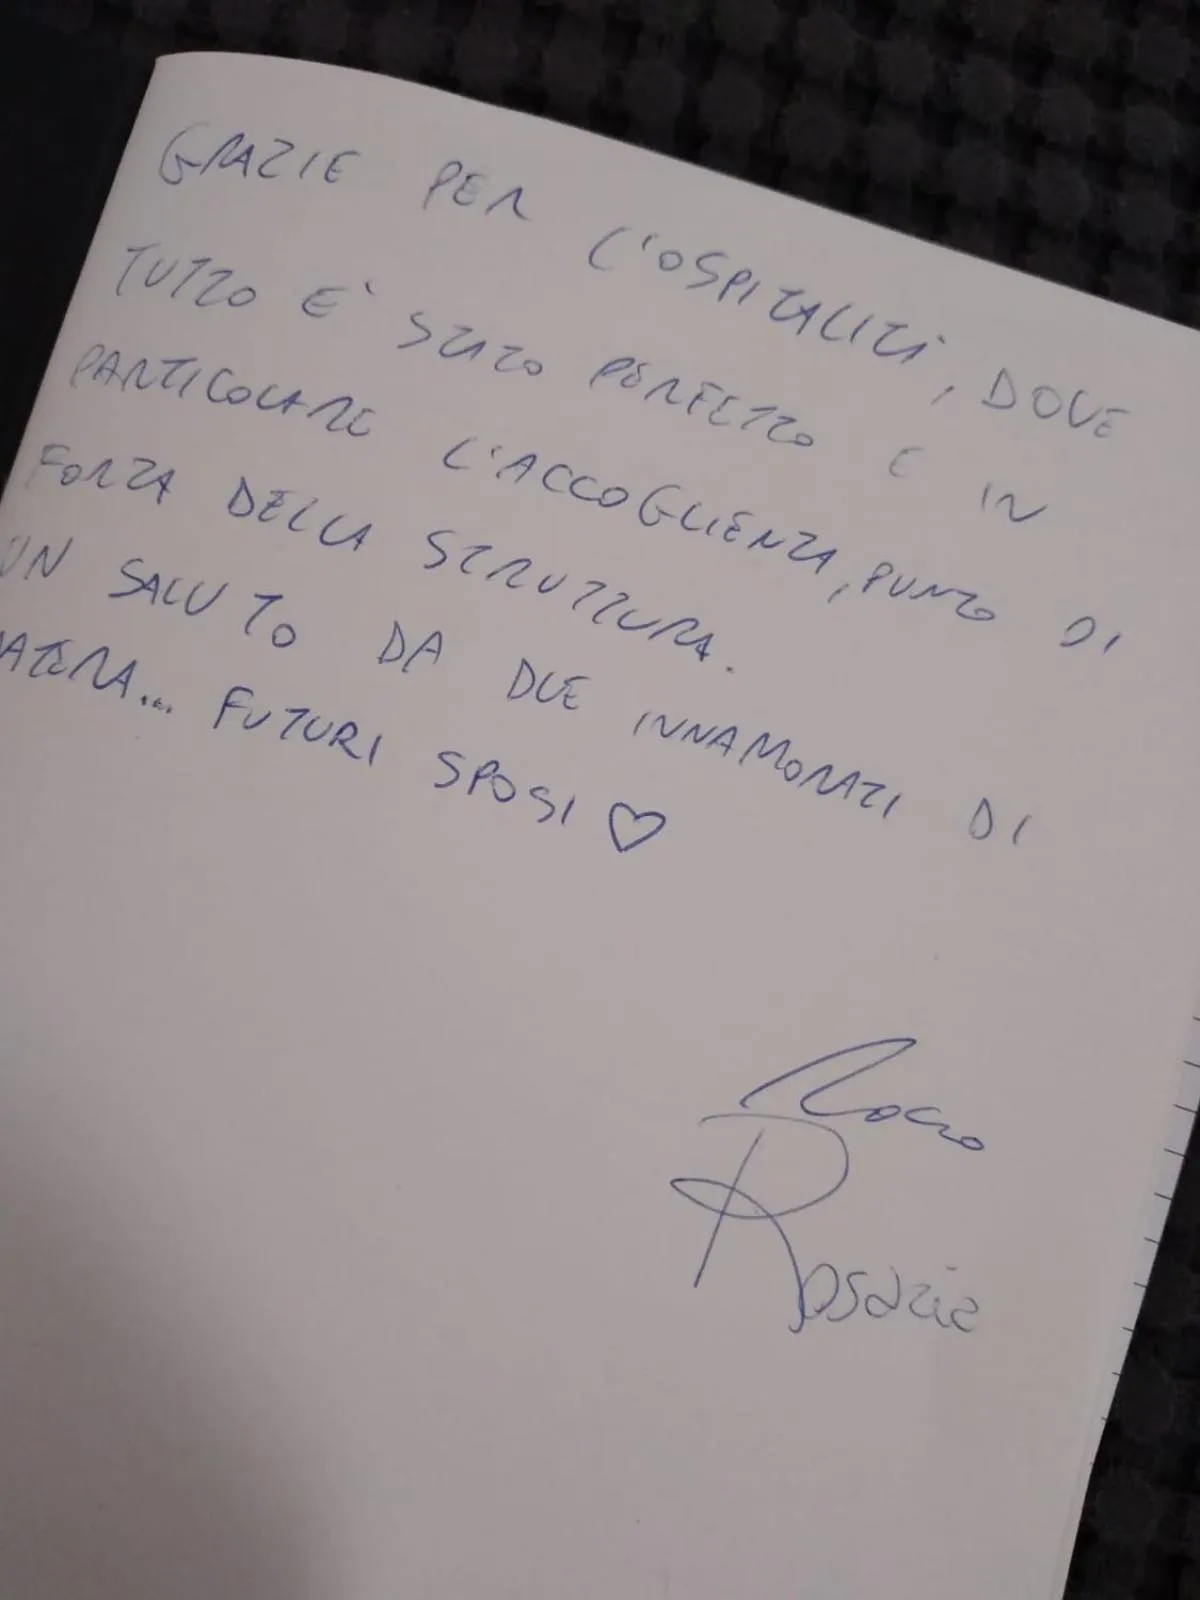 GRAZIE PER L'OSPITALITÀ, DOVE
TUTTO E' STATO PERFETTO E IN
PARTICOLARE L'ACCOGLIENZA, PUNTO DI
FORZA DELLA STRUTTURA.
UN SALUTO DA DUE INNAMORATI DI
MATERA... FUTURI SPOSI ♡
Rocco
Rosaria